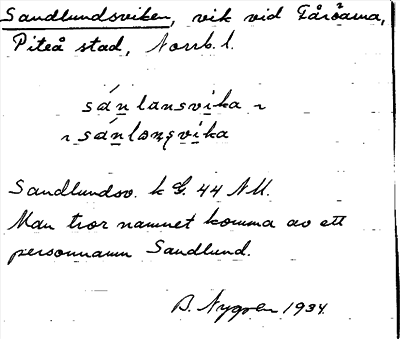 Sandlundsviken, vik vid Fåröarna,
Piteå stad, Norrb. l.
sánlansvika ~
~ sánlanşvika
Sandlundsv. k G. 44 NU.
Man tror namnet komma av ett
personnamn Sandlund.
B. Nygren 1934